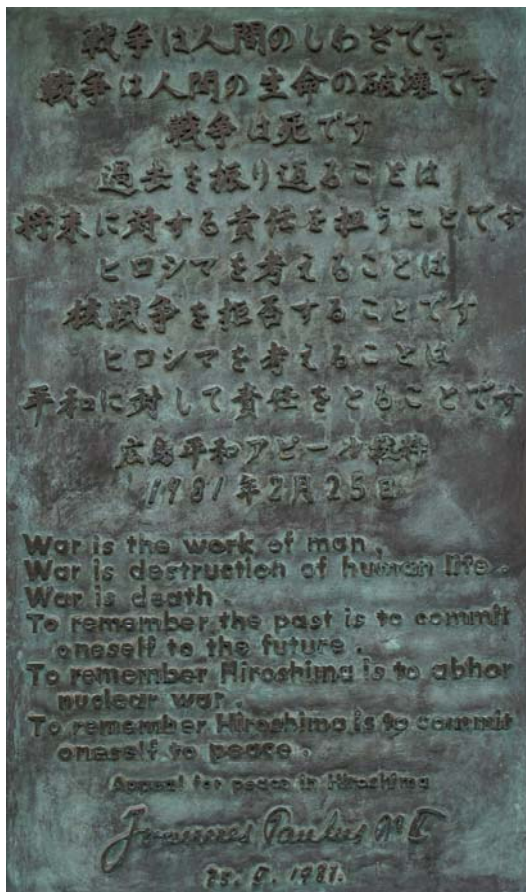 戦争は人間のしわざです
戦争は人間の生命の破壊です
戦争は死です
過去を振り返ることは
将来に対する責任を担うことです
ヒロシマを考えることは
核戦争を拒否することです
ヒロシマを考えることは
平和に対して責任をとることです
広島平和アピール抜粋
1981年2月25日
War is the work of man.
War is destruction of human life.
War is death.
To remember the past is to commit
oneself to the future.
To remember Hiroshima is to abhor
nuclear war.
To remember Hiroshima is to commit
oneself to peace.
Appeal for peace in Hiroshima
Joannes Paulus PP. II
25. II. 1981.